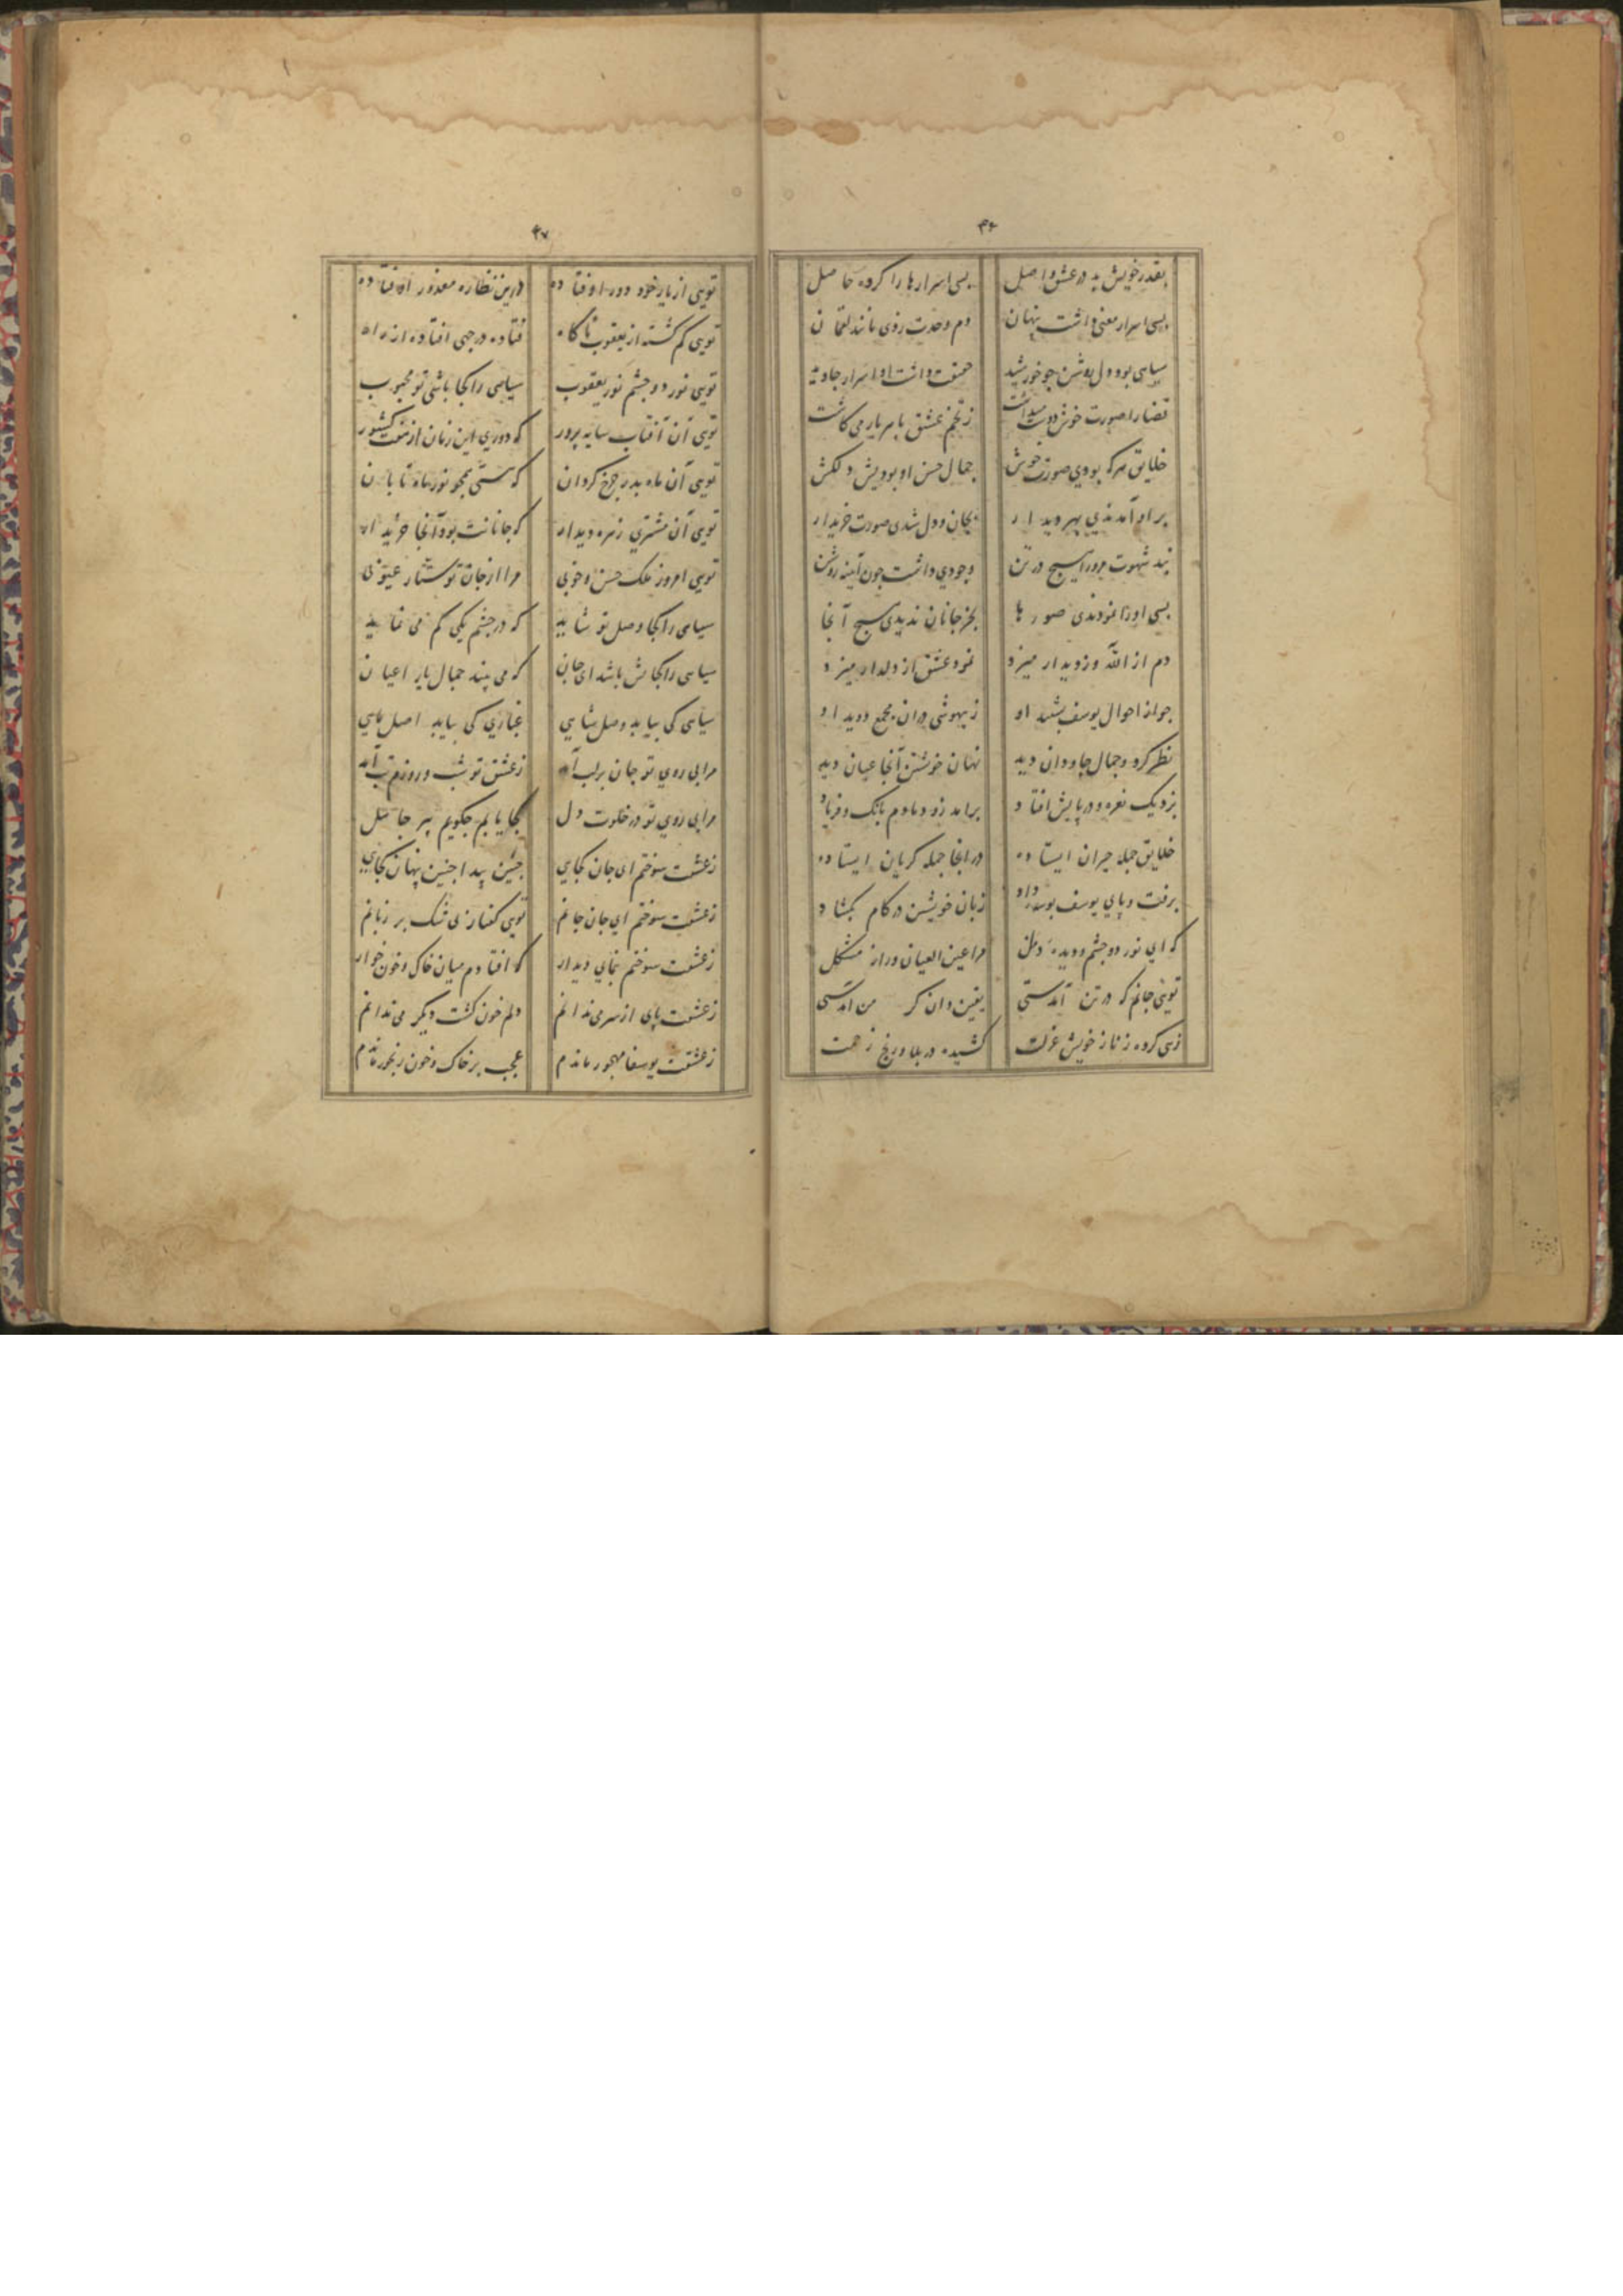 ۴۶
بقدر خویش بد در عشق واصل بسی اسرارها را کرده حاصل
بسی اسرار معنی داشت پنهان دم وحدت زدی مانند لقمان
سیاهی بود دل روشن چو خورشید حقیقت داشت او اسرار جاوید
قضا را صورت خوش دوست میداشت ز تخم عشق با هر یار می کاشت
خلایق هرکه بودی صورتش خوش جمال حسن او بودیش دلکش
بر او آمدندی بهر دیدار بجان و دل شدی صورت خریدار
نبد شهوت مرورا هیچ در تن وجودی داشت چون آیینه روشن
بسی او را نمودندی صورها بجز جانان ندیدی هیچ آنجا
دم از الله وز دیدار میزد نمود عشق از دلدار میزد
چو از احوال یوسف بشنید او ز بیهوشی در آن مجمع دوید او
نظر کرد و جمال جاودان دید نهان خویشتن آنجا عیان دید
بزد یک نعره و در پایش افتاد برآمد زو دمادم بانگ و فریاد
خلایق جمله حیران ایستاده در آنجا جمله گریان ایستاده
برفت و پای یوسف بوسه داد زبان خویشتن در کام بگشاد
که ای نور دو چشم و دیده دل مرا عین العیان و راز مشکل
تویی جانم که در تن آمدستی یقین دان کز من آمدستی
کشیده در بلا و رنج زحمت
۴۷
تویی از یار خود دور اوفتاده درین نظاره معذور اوفتاده
تویی گم گشته از یعقوب ناگاه فتاده در چهی افتاده از راه
تویی نور دو چشم نور یعقوب سیاهی را کجا باشی تو محبوب
تویی آن آفتاب سایه پرور که دوری این زمان از هفت کشور
تویی آن ماه بدر چرخ گردان که هستی همچو نور ماه تابان
تویی آن مشتری زهره دیدار که جانانت بود آنجا خریدار
تویی امروز ملک حسن و خوبی مرا از جان تو ستار عیوبی
سیاهی را کجا وصل تو شاید که در چشم یکی کم می نماید
سیاهی را کجا باشد ای جان که می بیند جمال یار اعیان
سیاهی کی بیابد وصل شاهی غباری کی بیابد اصل ماهی
مرا بی روی تو جان بر لب آمد ز عشق تو شب و روزم تب آمد
مرا بی روی تو در خلوت دل کجا یابم چگویم پر حاصل
ز عشقت سوختم ای جان کجایی چنین پیدا چنین پنهان کجایی
ز عشقت سوختم ای جان جانم تویی گفتار بی شک بر زبانم
ز عشقت سوختم بنمای دیدار که افتادم میان خاک و خون خوار
ز عشقت پای از سر می ندانم دلم خون گشت دیگر می ندانم
ز عشقت یوسفا مهجور ماندم عجب بر خاک و خون رنجور ماندم